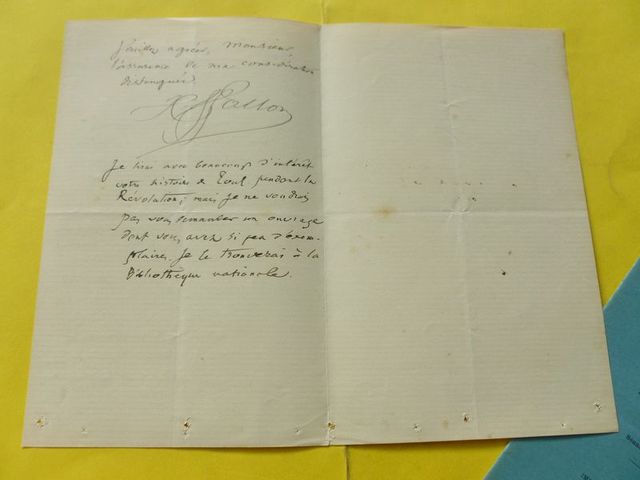 Veuillez agréer, Monsieur,
l'assurance de ma considération
distinguée.
Je lirai avec beaucoup d'intérêt
votre histoire de Toul pendant la
Révolution; mais je ne voudrais
pas vous demander un ouvrage
dont vous avez si peu d'exem-
plaires. Je le trouverai à la
Bibliothèque nationale.